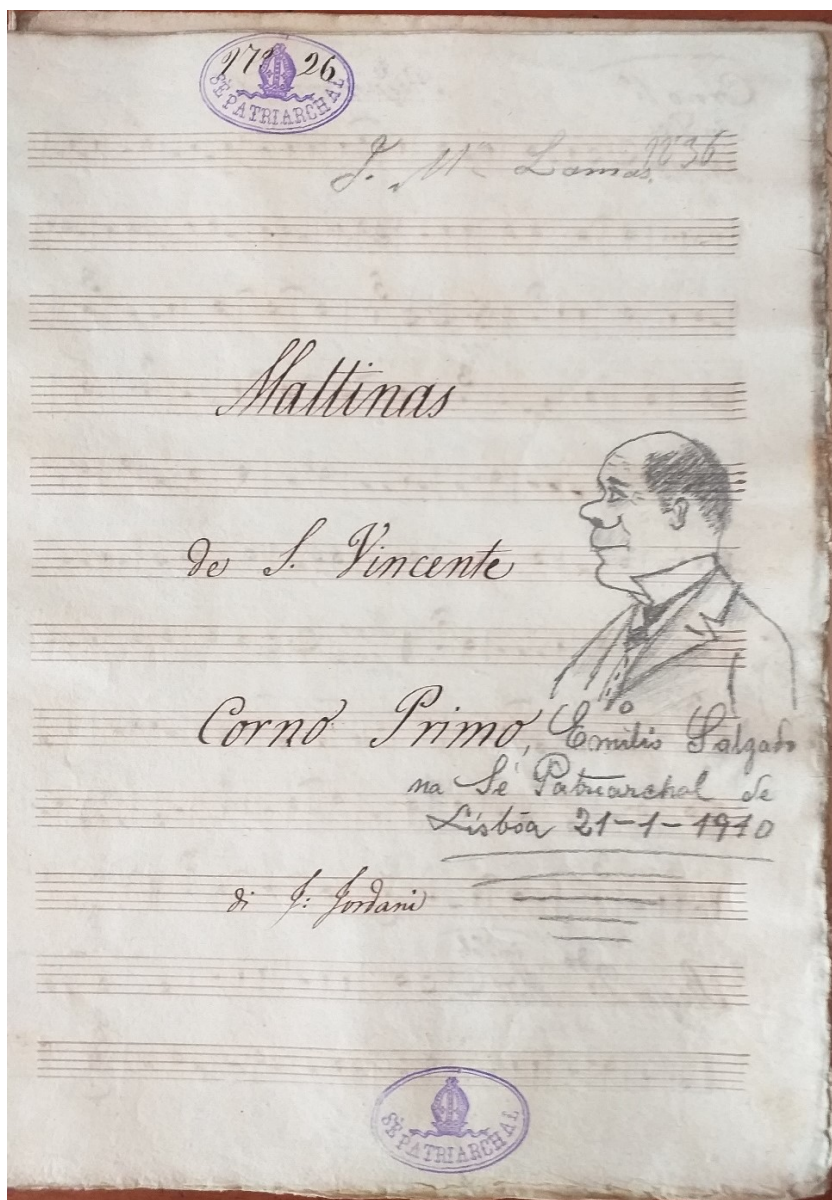 173 26
SÉ PATRIARCHAL
J. Mª Lamas. 1836
Mattinas
de S. Vincente
Corno Primo, Emilio Salgado
na Sé Patriarchal de
Lisbôa 21-1-1910
di J: Jordani
SÉ PATRIARCHAL